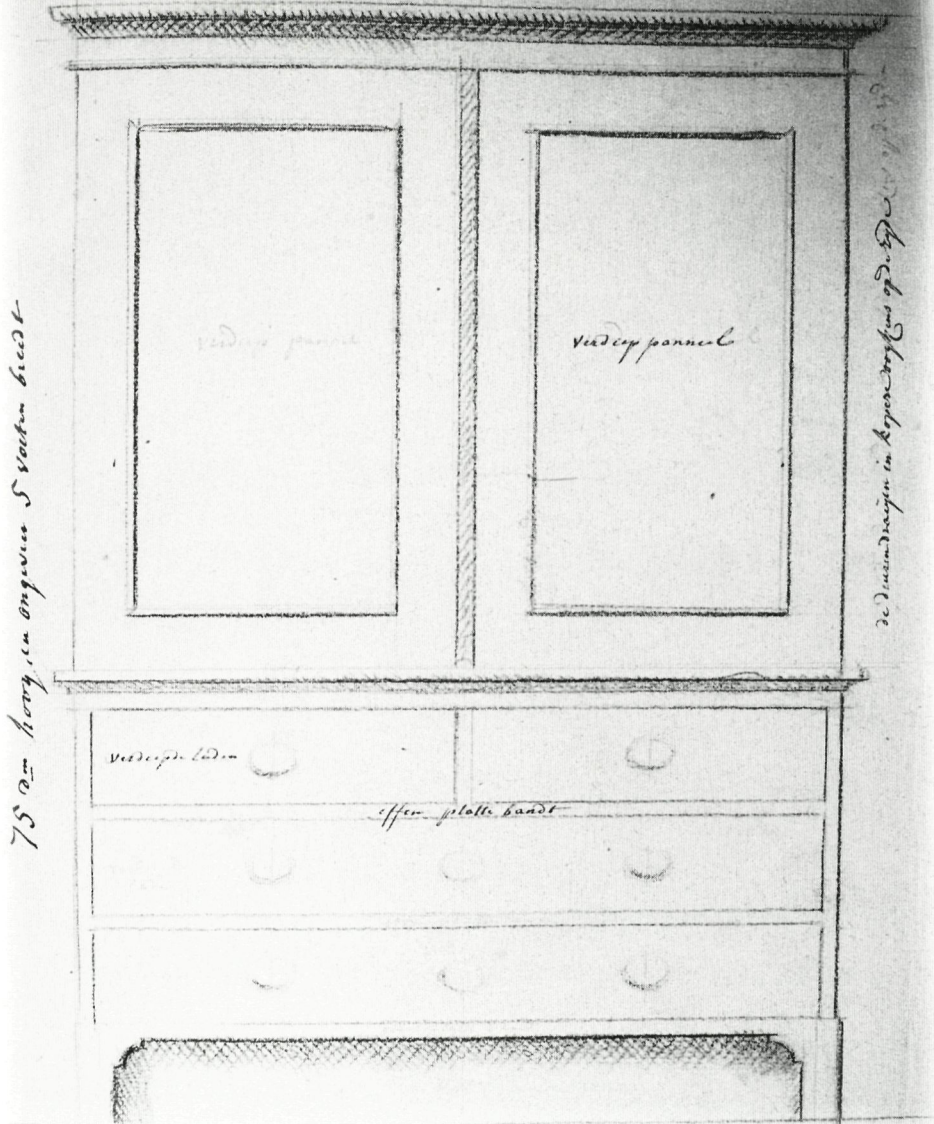 75 dm hoog, en ongeveer 5 voeten breedt
verdiep panneel
verdiep panneel
de deuren draaijen in kopere op de zyde
verdiepde laden
effen platte bandt